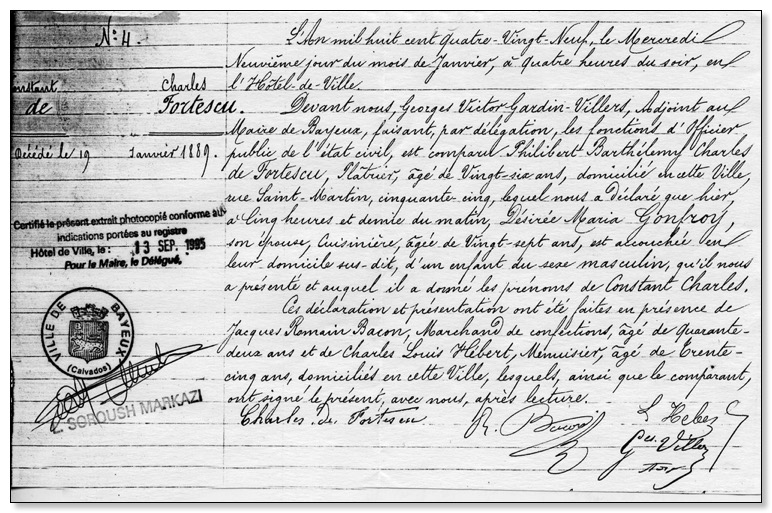 N° 4.
Constant Charles
de Fortescu.
Décédé le 19 Janvier 1889.
Certifié le présent extrait photocopié conforme aux
indications portées au registre
Hôtel de Ville, le : 13 SEP. 1995
Pour le Maire, le Délégué,
VILLE DE BAYEUX
(Calvados)
SOROUSH MARKAZI
L'An mil huit cent Quatre-Vingt-Neuf, le Mercredi
Neuvième jour du mois de Janvier, à Quatre heures du soir, en
l'Hôtel-de-Ville.
Devant nous, Georges Victor Gardin-Villers, Adjoint au
Maire de Bayeux, faisant, par délégation, les fonctions d'Officier
public de l'état civil, est comparu Philibert Barthélemy Charles
de Fortescu, Plâtrier, âgé de Vingt-six ans, domicilié en cette Ville,
rue Saint-Martin, cinquante-cinq, lequel nous a déclaré que hier,
à Cinq heures et demie du matin, Désirée Maria Gonfroy,
son épouse, Cuisinière, âgée de Vingt-sept ans, est accouchée en
leur domicile sus-dit, d'un enfant du sexe masculin, qu'il nous
a présenté et auquel il a donné les prénoms de Constant Charles.
Ces déclaration et présentation ont été faites en présence de
Jacques Romain Bacon, Marchand de confections, âgé de Quarante-
deux ans et de Charles Louis Hébert, Menuisier, âgé de Trente-
cinq ans, domiciliés en cette Ville, lesquels, ainsi que le comparant,
ont signé le présent, avec nous, après lecture.
Charles de Fortescu R. Bacon L Hebert
Villers